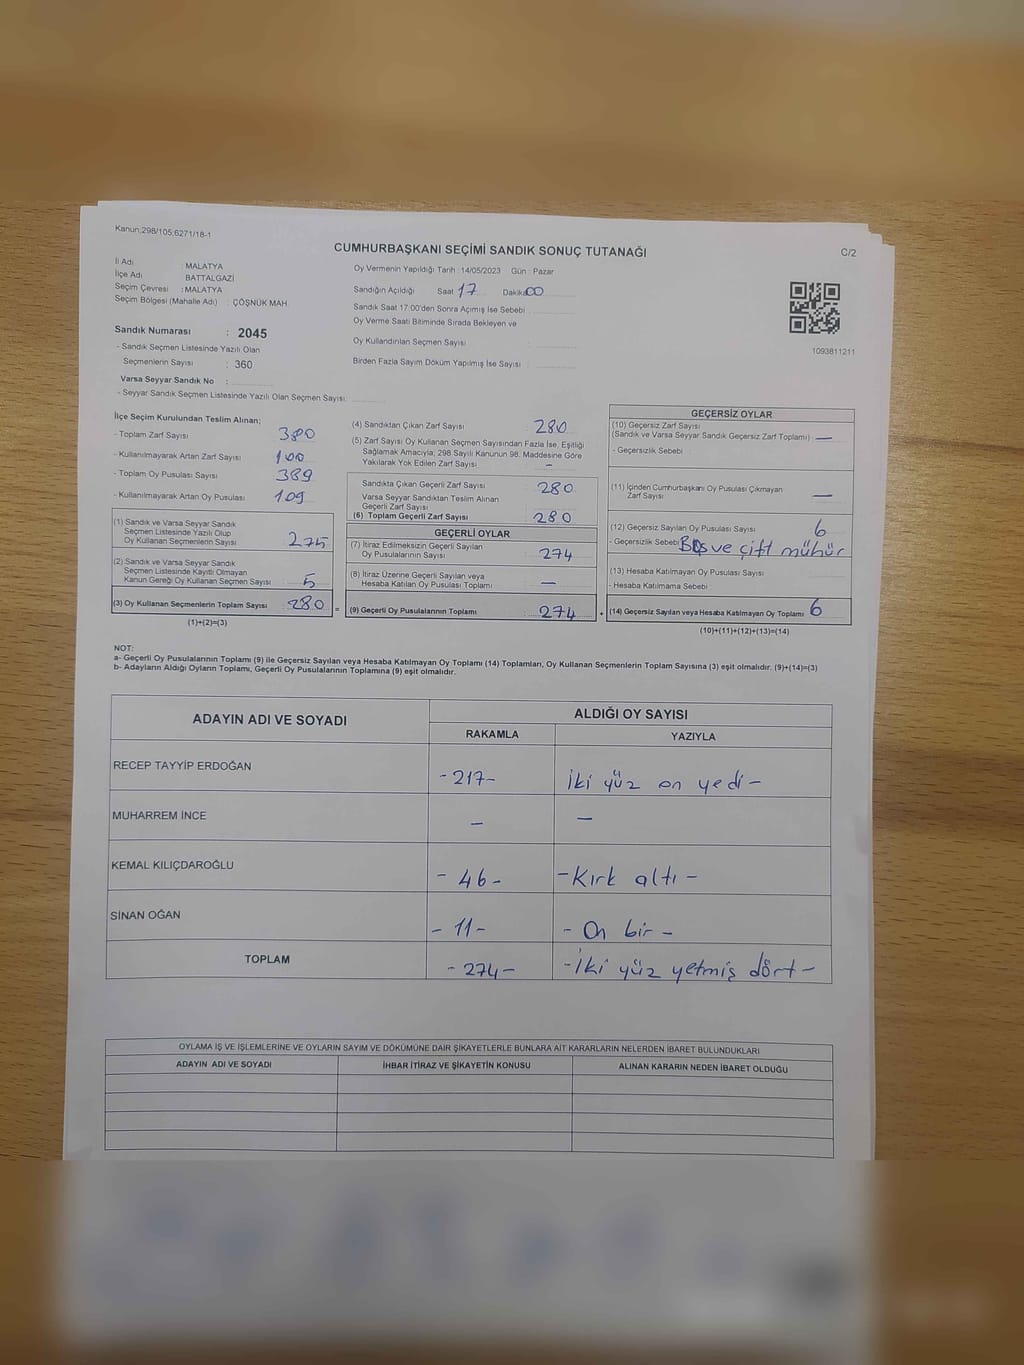 Kanun:298/105;6271/18-1
CUMHURBAŞKANI SEÇİMİ SANDIK SONUÇ TUTANAĞI
C/2
İl Adı : MALATYA
İlçe Adı BATTALGAZİ
Seçim Çevresi : MALATYA
Seçim Bölgesi (Mahalle Adı) : ÇÖŞNÜK MAH.
Oy Vermenin Yapıldığı Tarih :14/05/2023 Gün : Pazar
Sandığın Açıldığı Saat 17 Dakika 00
Sandık Saat 17:00'den Sonra Açımış İse Sebebi
Oy Verme Saati Bitiminde Sırada Bekleyen ve
Oy Kullandırılan Seçmen Sayısı :
Birden Fazla Sayım Döküm Yapılmış İse Sayısı :
1093811211
Sandık Numarası : 2045
- Sandık Seçmen Listesinde Yazılı Olan
Seçmenlerin Sayısı : 360
Varsa Seyyar Sandık No :
- Seyyar Sandık Seçmen Listesinde Yazılı Olan Seçmen Sayısı:
İlçe Seçim Kurulundan Teslim Alınan;
- Toplam Zarf Sayısı 380
- Kullanılmayarak Artan Zarf Sayısı 100
- Toplam Oy Pusulası Sayısı 389
- Kullanılmayarak Artan Oy Pusulası 109
(1) Sandık ve Varsa Seyyar Sandık
Seçmen Listesinde Yazılı Olup
Oy Kullanan Seçmenlerin Sayısı 275
(2) Sandık ve Varsa Seyyar Sandık
Seçmen Listesinde Kayıtlı Olmayan
Kanun Gereği Oy Kullanan Seçmen Sayısı 5
(3) Oy Kullanan Seçmenlerin Toplam Sayısı : 280
(1)+(2)=(3)
(4) Sandıktan Çıkan Zarf Sayısı 280
(5) Zarf Sayısı Oy Kullanan Seçmen Sayısından Fazla İse, Eşitliği
Sağlamak Amacıyla, 298 Sayılı Kanunun 98. Maddesine Göre
Yakılarak Yok Edilen Zarf Sayısı –
Sandıkta Çıkan Geçerli Zarf Sayısı 280
Varsa Seyyar Sandıktan Teslim Alınan
Geçerli Zarf Sayısı
(6) Toplam Geçerli Zarf Sayısı 280
GEÇERLİ OYLAR
(7) İtiraz Edilmeksizin Geçerli Sayılan
Oy Pusulalarının Sayısı 274
(8) İtiraz Üzerine Geçerli Sayılan veya
Hesaba Katılan Oy Pusulası Toplamı —
= (9) Geçerli Oy Pusulalarının Toplamı 274
GEÇERSİZ OYLAR
(10) Geçersiz Zarf Sayısı
(Sandık ve Varsa Seyyar Sandık Geçersiz Zarf Toplamı) —
- Geçersizlik Sebebi
(11) İçinden Cumhurbaşkanı Oy Pusulası Çıkmayan
Zarf Sayısı —
(12) Geçersiz Sayılan Oy Pusulası Sayısı 6
- Geçersizlik Sebebi Boş ve çift mühür
(13) Hesaba Katılmayan Oy Pusulası Sayısı
- Hesaba Katılmama Sebebi
+ (14) Geçersiz Sayılan veya Hesaba Katılmayan Oy Toplamı 6
(10)+(11)+(12)+(13)=(14)
NOT:
a- Geçerli Oy Pusulalarının Toplamı (9) ile Geçersiz Sayılan veya Hesaba Katılmayan Oy Toplamı (14) Toplamları, Oy Kullanan Seçmenlerin Toplam Sayısına (3) eşit olmalıdır. (9)+(14)=(3)
b- Adayların Aldığı Oyların Toplamı, Geçerli Oy Pusulalarının Toplamına (9) eşit olmalıdır.
ADAYIN ADI VE SOYADI
ALDIĞI OY SAYISI
RAKAMLA YAZIYLA
RECEP TAYYİP ERDOĞAN -217- İki yüz on yedi-
MUHARREM İNCE – –
KEMAL KILIÇDAROĞLU - 46- -Kırk altı-
SİNAN OĞAN - 11- - On bir -
TOPLAM -274- -İki yüz yetmiş dört-
OYLAMA İŞ VE İŞLEMLERİNE VE OYLARIN SAYIM VE DÖKÜMÜNE DAİR ŞİKAYETLERLE BUNLARA AİT KARARLARIN NELERDEN İBARET BULUNDUKLARI
ADAYIN ADI VE SOYADI İHBAR İTİRAZ VE ŞİKAYETİN KONUSU ALINAN KARARIN NEDEN İBARET OLDUĞU